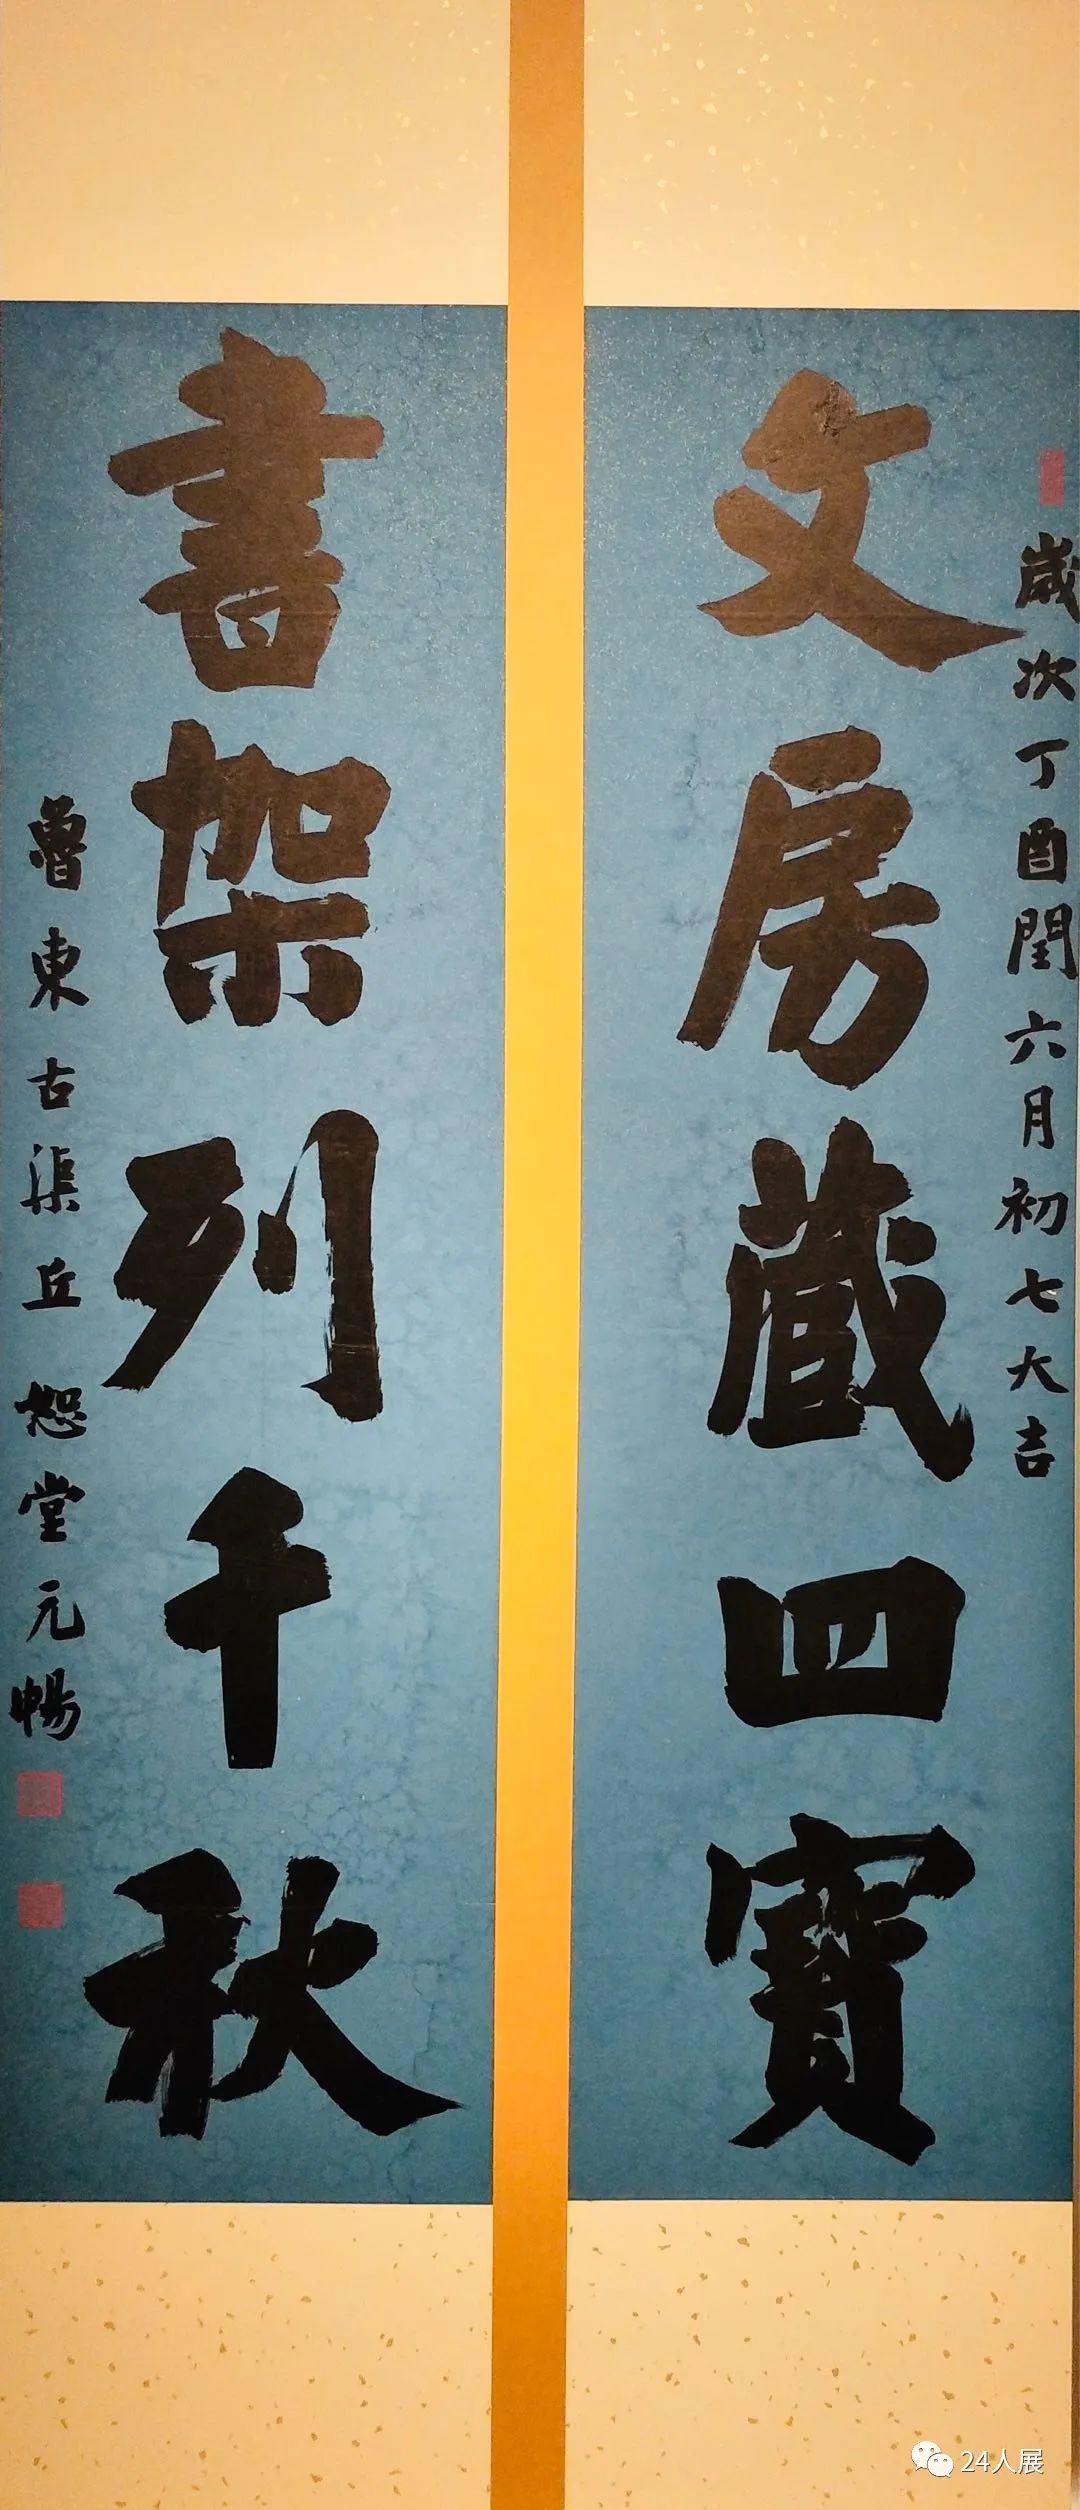 歲次丁酉閏六月初七大吉
文房藏四寶
書架列千秋
魯東古渠丘恕堂元暢
24人展